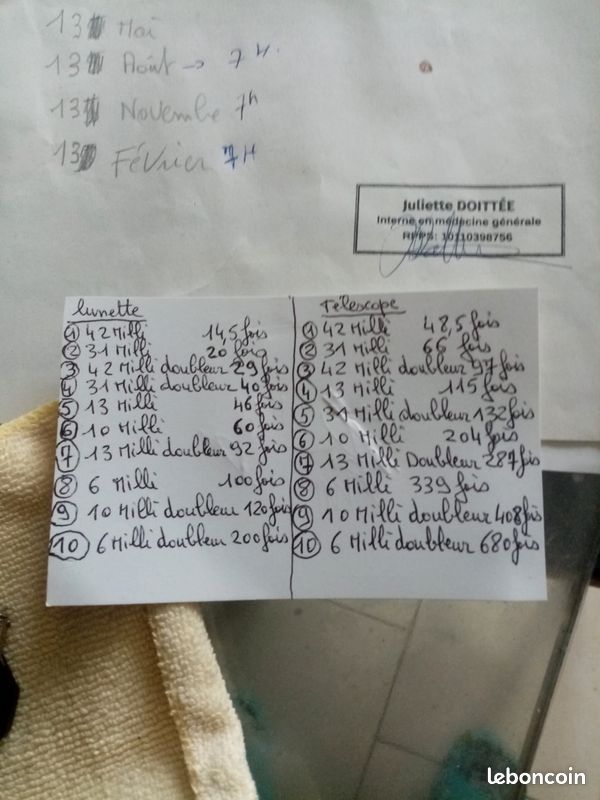 13 Mai
13 Août -> 7 H.
13 Novembre 7h
13 Février 7H
Juliette DOITTÉE
Interne en médecine générale
RPPS: 10110398756
lunette
① 42 Milli 14,5 fois
② 31 Milli 20 fois
③ 42 Milli doubleur 29 fois
④ 31 Milli doubleur 40 fois
⑤ 13 Milli 46 fois
⑥ 10 Milli 60 fois
⑦ 13 Milli doubleur 92 fois
⑧ 6 Milli 100 fois
⑨ 10 Milli doubleur 120 fois
⑩ 6 Milli doubleur 200 fois
Télescope
① 42 Milli 48,5 fois
② 31 Milli 66 fois
③ 42 Milli doubleur 97 fois
④ 13 Milli 115 fois
⑤ 31 Milli doubleur 132 fois
⑥ 10 Milli 204 fois
⑦ 13 Milli Doubleur 287 fois
⑧ 6 Milli 339 fois
⑨ 10 Milli doubleur 408 fois
⑩ 6 Milli doubleur 680 fois
leboncoin